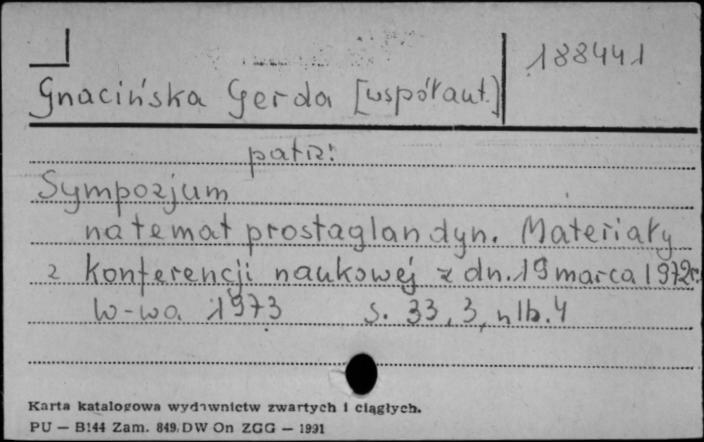 188441
Gnacińska Gerda [współaut.]
patrz:
Sympozjum
na temat prostaglandyn. Materiały
z konferencji naukowej z dn. 19 marca 1972r.
W-wa 1973 s. 33, 3, nlb. 4
Karta katalogowa wydawnictw zwartych i ciągłych.
PU — B144 Zam. 849. DW On ZGG — 1991